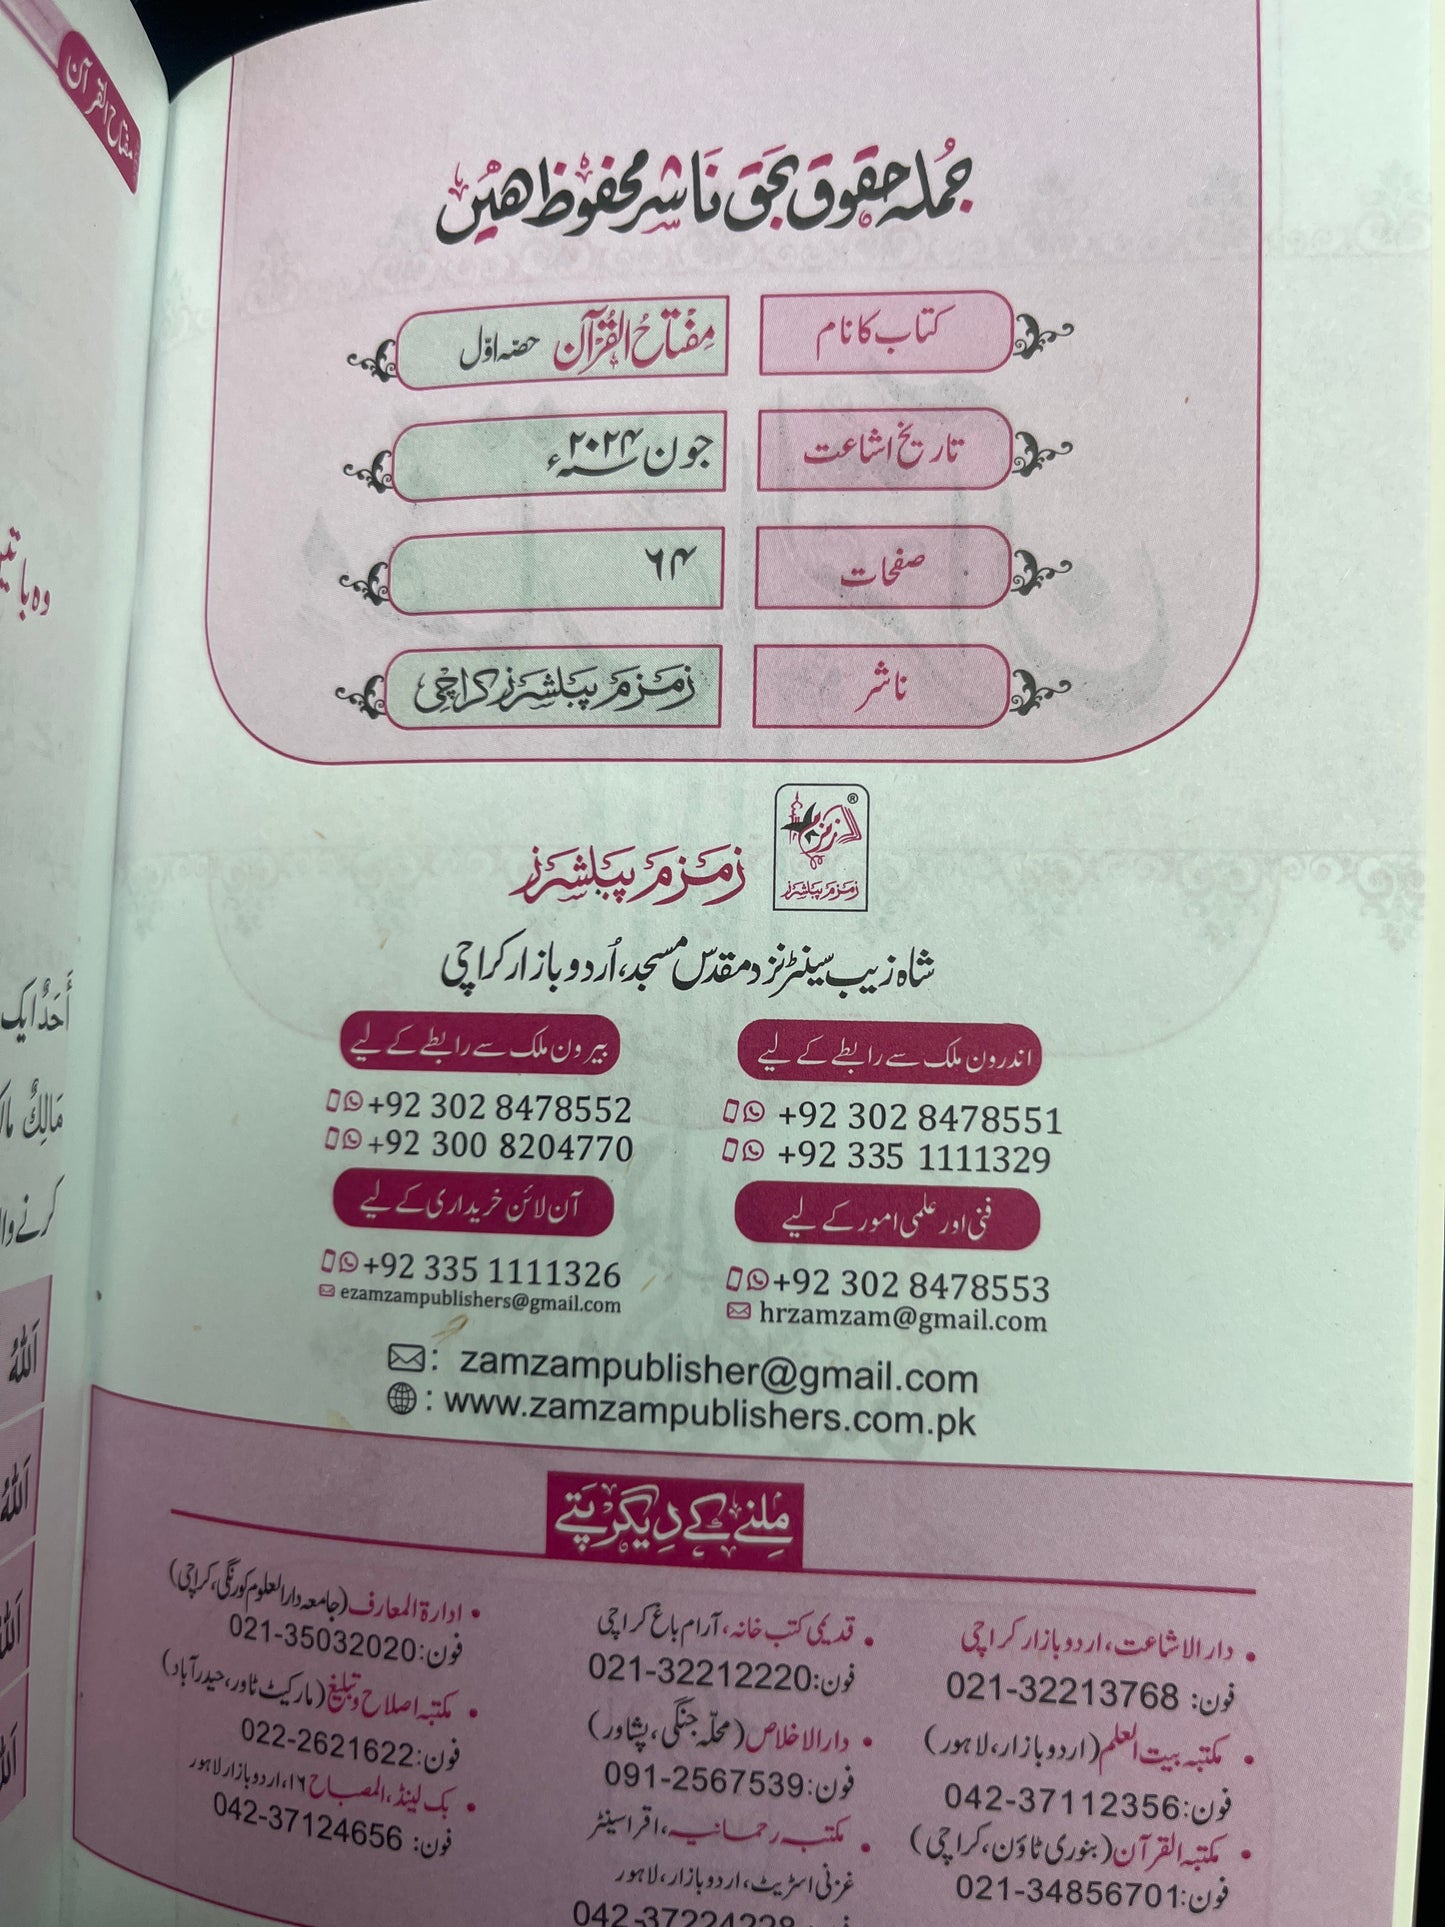 مفتاح القرآن
وہ
أَحَدٌ ایک
مَالِكٌ
کرنے
اَللّٰهُ
اَللّٰهُ
جُملہ حقوق بحق ناشر محفوظ ھیں
کتاب کا نام
مِفْتَاحُ الْقُرْآن حصّہ اوّل
تاریخ اشاعت
جون ۲۰۲۴ء
صفحات
۶۴
ناشر
زمزم پبلشرز کراچی
®
زمزم
زمزم پبلشرز
زمزم پبلشرز
شاہ زیب سینٹر نزد مقدّس مسجد، اُردو بازار کراچی
اندرون ملک سے رابطے کے لیے
+92 302 8478551
+92 335 1111329
بیرون ملک سے رابطے کے لیے
+92 302 8478552
+92 300 8204770
فنی اور علمی امور کے لیے
+92 302 8478553
hrzamzam@gmail.com
آن لائن خریداری کے لیے
+92 335 1111326
ezamzampublishers@gmail.com
: zamzampublisher@gmail.com
: www.zamzampublishers.com.pk
مِلنے کے دِیگر پَتے
• دارالاشاعت، اردو بازار کراچی
فون: 021-32213768
• مکتبہ بیت العلم (اردو بازار، لاہور)
فون: 042-37112356
• مکتبہ القرآن (بنوری ٹاؤن، کراچی)
فون: 021-34856701
• قدیمی کتب خانہ، آرام باغ کراچی
فون: 021-32212220
• دارالاخلاص (محلّہ جنگی، پشاور)
فون: 091-2567539
• مکتبہ رحمانیہ، اقرا سینٹر
غزنی اسٹریٹ، اردو بازار، لاہور
042-37224228
• ادارۃ المعارف (جامعہ دارالعلوم کورنگی، کراچی)
فون: 021-35032020
• مکتبہ اصلاح و تبلیغ (مارکیٹ ٹاور، حیدرآباد)
فون: 022-2621622
• بک لینڈ، المصباح ۱۶، اردو بازار لاہور
فون: 042-37124656